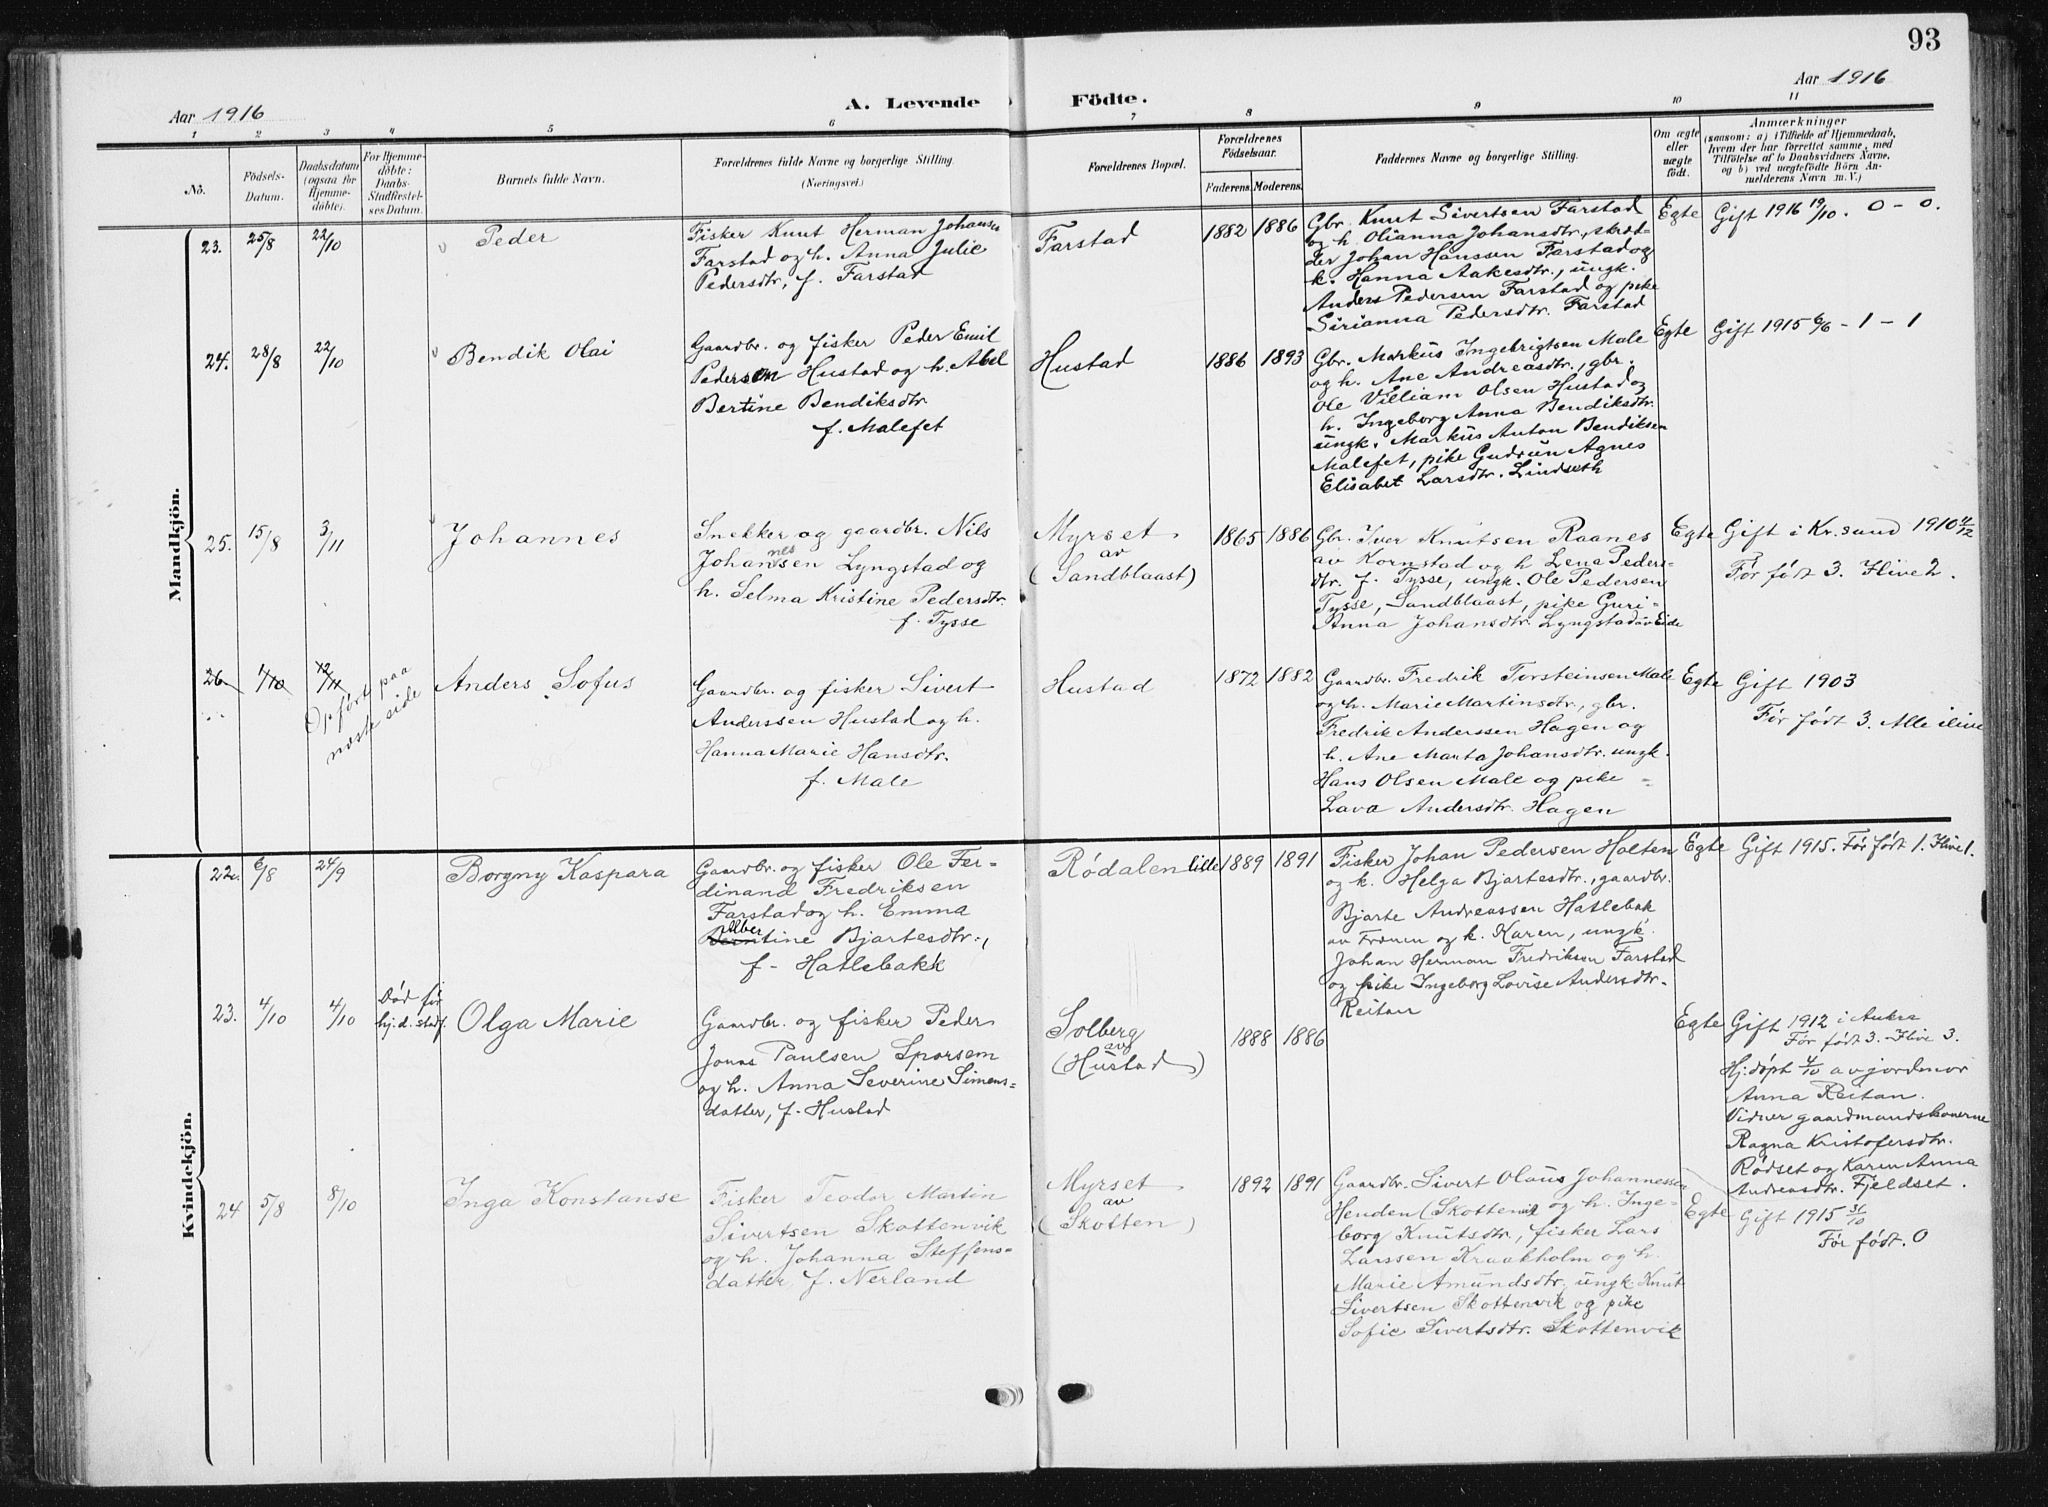 93
Aar 1916
A. Levende Födte.
Aar 1916
1 2 3 4 5 6 7 8 9 10 11
No.
Födsels-
Datum.
Daabsdatum
(ogsaa for
Hjemme-
döbte).
For Hjemme-
döbte:
Daabs-
Stadfæstel-
ses Datum.
Barnets fulde Navn.
Forældrenes fulde Navne og borgerlige Stilling.
(Næringsvei.)
Forældrenes Bopæl.
Forældrenes
Födselsaar.
Faderens. Moderens.
Faddernes Navne og borgerlige Stilling.
Om ægte
eller
uægte
födt.
Anmærkninger
(saasom: a) i Tilfælde af Hjemmedaab,
hvem der har forrettet samme, med
Tilföielse af to Daabsvidners Navne,
og b) ved uægtefödte Börn An-
melderens Navn m. V.)
Mandkjön.
23. 25/8 22/10
Peder
Fisker Knut Herman Johansen
Farstad og h. Anna Julie
Pedersdtr, f. Farstad
Farstad
1882 1886
Gbr. Knut Sivertsen Farstad
og h. Olianna Johansdtr., skræd-
der Johan Hanssen Farstad og
k. Hanna Aakesdtr., ungk.
Anders Pedersen Farstad og pike
Sirianna Pedersdtr. Farstad
Egte
Gift 1916 19/10. 0 - 0.
24. 28/8 22/10
Bendik Olai
Gaardbr. og fisker Peder Emil
Pedersen Hustad og h. Abel
Bertine Bendiksdtr.
f. Malefet
Hustad
1886 1893
Gbr. Markus Ingebrigtsen Male
og h. Ane Andreasdtr., gbr.
Ole Villiam Olsen Hustad og
h. Ingeborg Anna Bendiksdtr.
ungk. Markus Anton Bendiksen
Malefet, pike Gudrun Agnes
Elisabet Larsdtr. Lindseth
Egte
Gift 1915 6/6 - 1 - 1
25. 15/8 3/11
Johannes
Snekker og gaardbr. Nils
Johannessen Lyngstad og
h. Selma Kristine Pedersdtr.
f. Tysse
Myrset
av
(Sandblaast)
1865 1886
Gbr. Iver Knutsen Raanes
av Kornstad og h Lena Peders-
dtr. f. Tysse, ungk. Ole Pedersen
Tysse, Sandblaast, pike Guri-
Anna Johansdtr. Lyngstad av Eide
Egte
Gift i Kr.sund 1910 4/12
Før født 3. Ilive 2.
26. 1/10 12/11
Opført paa
næste side
Anders Sofus
Gaardbr. og fisker Sivert
Anderssen Hustad og h.
Hanna Marie Hansdtr.
f. Male
Hustad
1872 1882
Gaardbr. Fredrik Torsteinsen Male
og h. Marie Martinsdtr, gbr.
Fredrik Anderssen Hagen og
h. Ane Marta Johansdtr. ungk.
Hans Olsen Male og pike
Lava Andersdtr. Hagen
Egte
Gift 1903
Før født 3. Alle ilive
Kvindekjön.
22. 6/8 24/9
Borgny Kaspara
Gaardbr. og fisker Ole Fer-
dinand Fredriksen
Farstad og h. Emma
Alber
Berntine Bjartesdtr.,
f. Hatlebakk
Rødalen lille
1889 1891
Fisker Johan Pedersen Holten
og k. Helga Bjartesdtr., gaardbr.
Bjarte Andreassen Hatlebak
av Frænen og k. Karen, ungk.
Johan Herman Fredriksen Farstad
og pike Ingeborg Lovise Andersdtr.
Reitan
Egte
Gift 1915. Før født 1. Ilive 1.
23. 4/10 4/10
Død før
hj.d. stadf.
Olga Marie
Gaardbr. og fisker Peder
Jonas Paulsen Sporsem
og h. Anna Severine Simens-
datter, f. Hustad
Solberg
av
(Hustad)
1888 1886
Egte
Gift 1912 i Aukra
Før født 3. Ilive 3.
Hj.døpt 4/10 av jordmor
Anna Reitan.
Vidner gaardmandskonerne
Ragna Kristofersdtr.
Rødset og Karen Anna
Andreasdtr. Fjeldset.
24 5/8 8/10
Inga Konstanse
Fisker Teodor Martin
Sivertsen Skottenvik
og h. Johanna Steffens-
datter, f. Nerland
Myrset
av
(Skotten)
1892 1891
Gaardbr. Sivert Olaus Johannessen
Henden (Skottenvik og h. Inge-
borg Knutsdtr., fisker Lars
Larssen Kraakholm og h.
Marie Amundsdtr. ungk. Knut
Sivertsen Skottenvik og pike
Sofie Sivertsdtr. Skottenvik
Egte
Gift 1915 31/10
Før født. 0